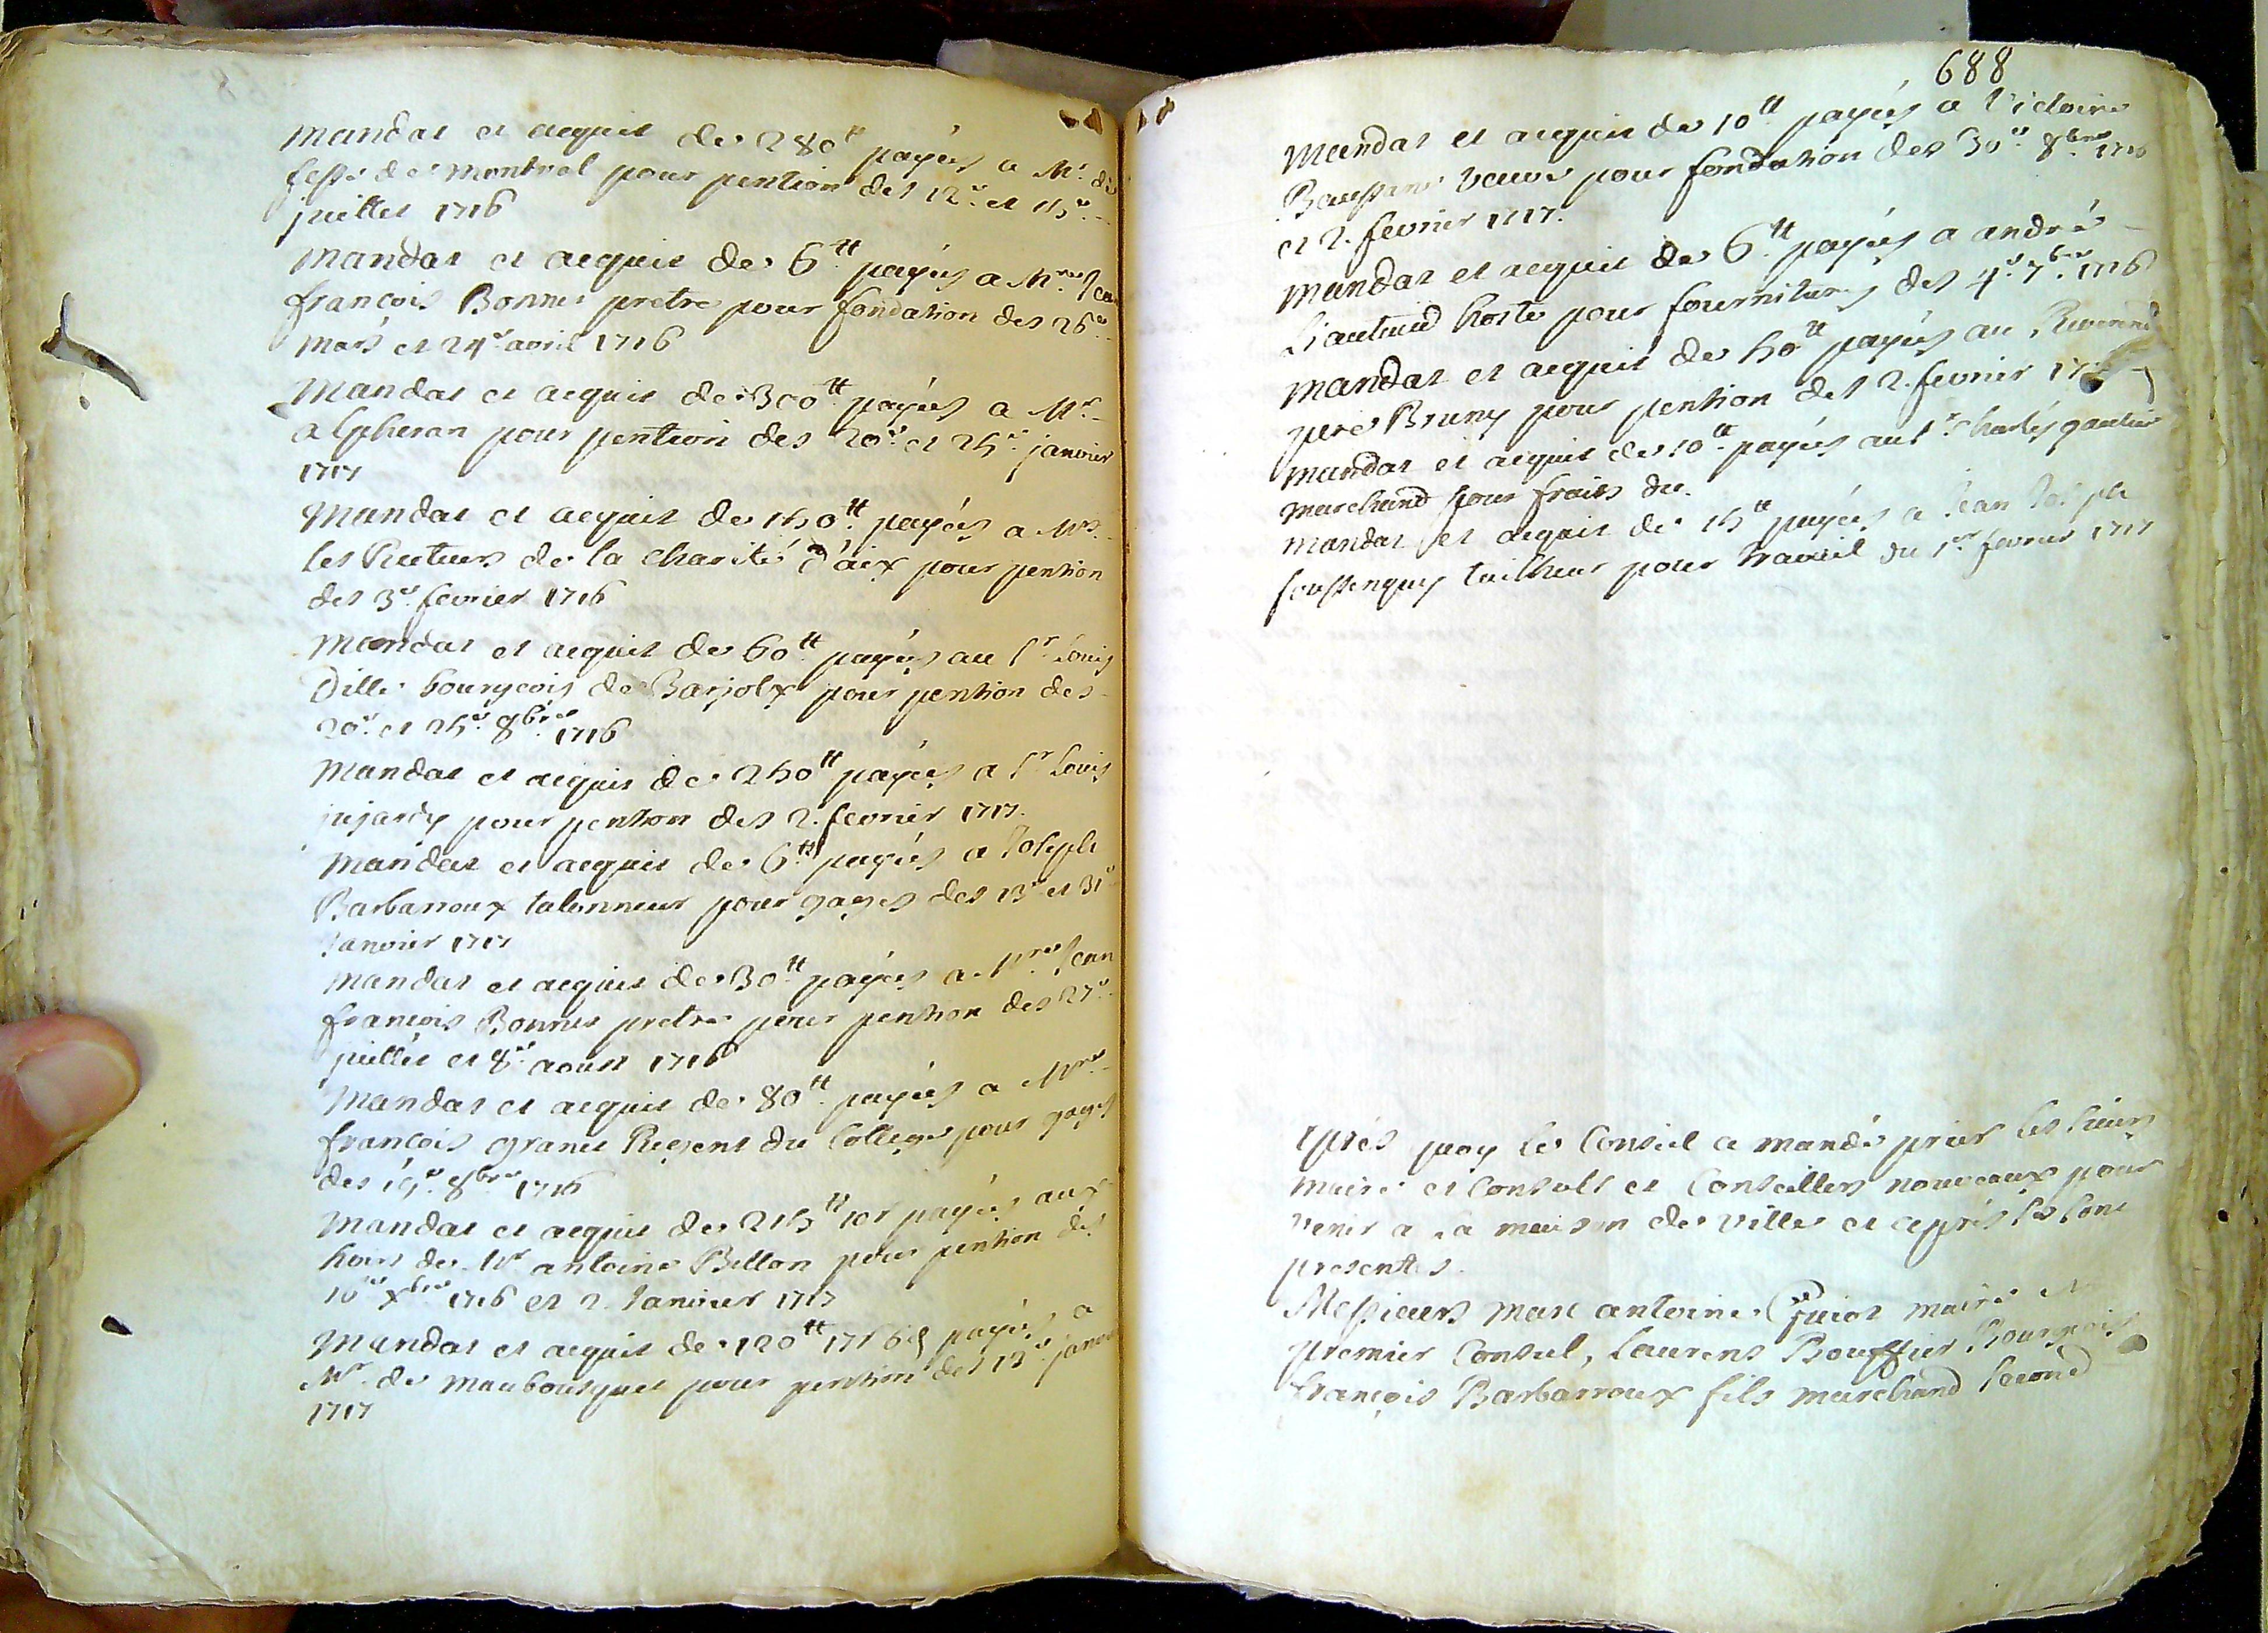 mandat et acquit de 280tt payés a Mr de
fesse de montvol pour pention des 12e et 15e
juillet 1716
mandat et acquit de 6tt payés a Mre Jean
françois Bonnet pretre pour fondation des 26e
mars et 24e avril 1716
Mandat et acquit de 300tt payés a Mr
alpheran pour pention des 20e et 25e janvier
1717
Mandat et acquit de 150tt payés a Mrs
les Recteurs de la Charité d'aix pour pention
des 3e fevrier 1716
mandat et acquit de 60tt payés au sr Louis
Dille bourgeois de Barjolx pour pention des
20e et 25e 8bre 1716
mandat et acquit de 250tt payés a sr Louis
jujardy pour pention des 2 fevrier 1717.
mandat et acquit de 6tt payés a Joseph
Barbarroux talonneur pour gages des 13e et 31e
Janvier 1717
mandat et acquit de 30tt payés a Mre Jean
françois Bonnet pretre pour pention des 27e
juillet et 8e aoust 1716
mandat et acquit de 80tt payés a Mre
françois granet Regent du College pour gages
des 8bre 1716
mandat et acquit de 215tt 10s payés aux
hoirs de Mr antoine Billon pour pention des
10e xbre 1716 et 2 Janvier 1717
mandat et acquit de 120tt 17s 6d payés a
Mr de maubousquet pour pention des 12e janvier
1717
688
mandat et acquit de 10tt payés a Victoire
veuve pour fondation des 30e 8bre 1716
et 2. fevrier 1717.
mandat et acquit de 6tt payés a andré
Liautaud hoste pour fournitures des 4e 7bre 1716
mandat et acquit de 50tt payés au Reverend
pere Bruny pour pention des 2. fevrier
mandat et acquit de 10tt payés au sr Charles gautier
marchand pour frais du.
mandat et acquit de 15tt payés a Jean Joseph
tailheur pour travail du 1er fevrier 1717
apres quoy le Conseil a mandé prier les sieurs
maire et Consuls et Conseillers nouveaux pour
venir a la maison de ville et apres se sont
presentés.
Messieurs marc antoine maire et
premier Consul, Laurens Bouffier Bourgeois
françois Barbarroux fils marchand second